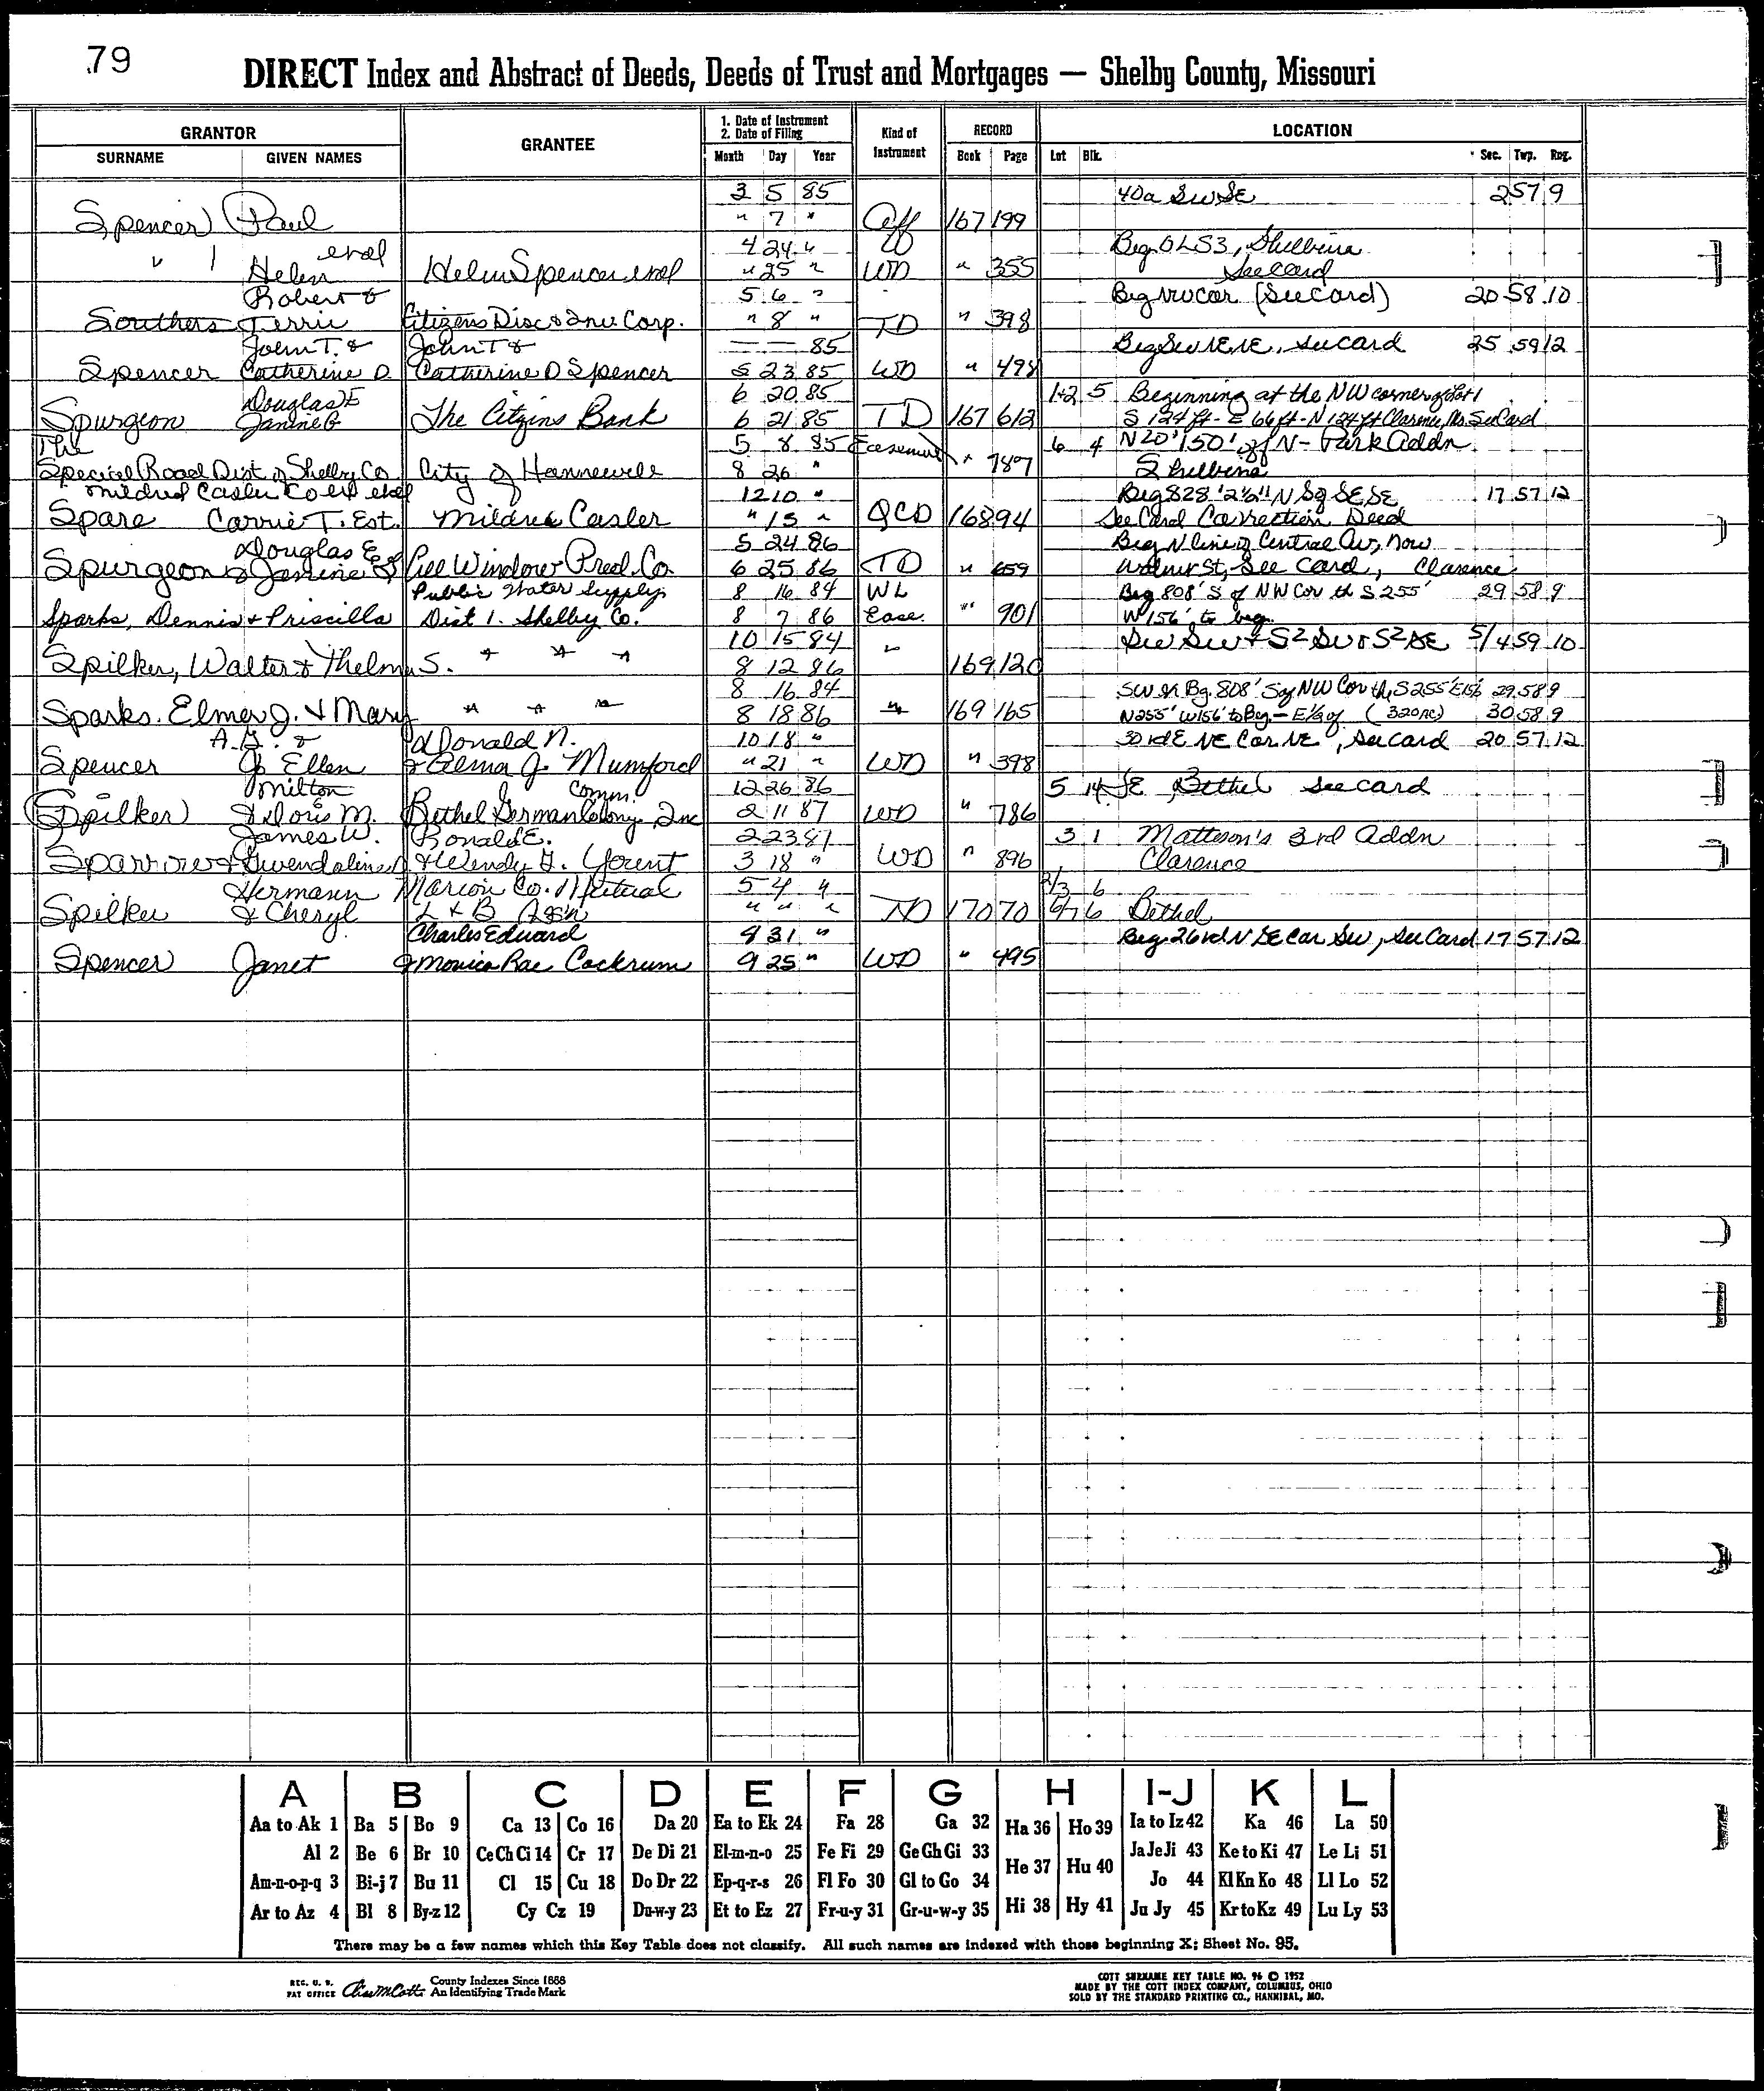 79
DIRECT Index and Abstract of Deeds, Deeds of Trust and Mortgages — Shelby County, Missouri
GRANTOR GRANTEE 1. Date of Instrument 2. Date of Filing Kind of Instrument RECORD LOCATION
SURNAME GIVEN NAMES Month Day Year Book Page Lot Blk. Sec. Twp. Rng.
3 5 85 40a SW SE 2 57 9
Spencer Paul " 7 " Aff 167 199
etal 4 24 " Beg OLS3, Shelbina
" Helen Helen Spencer etal " 25 " WD " 355 See Card
Robert & 5 6 " Beg NW cor (See Card) 20 58 10
Southers Terrie Citizens Disc & Inv. Corp. " 8 " TD " 398
John T. & John T & — — 85 Beg SW NE NE, See card 25 59 12
Spencer Catherine D. Catherine D Spencer 5 23 85 WD " 478
Douglas E 6 20 85 1+2 5 Beginning at the NW corner of Lot 1
Spurgeon Janine G The Citizins Bank 6 21 85 TD 167 612 S 124 ft - E 66 ft - N 124 ft Clarence, Mo. See Card
The 5 8 85 Easement 6 4 N 20' 150' of N - Park Addn
Special Road Dist of Shelby Co City of Hunnewell 8 26 " " 787 Shelbina
Mildred Casler Co ex etal 12 10 " Beg 828' 2 1/2" N SE SE 17 57 12
Spare Carrie T. Est. Mildred Casler " 15 " QCD 168 94 See Card Correction Deed
Douglas E 5 24 86 Beg N line of Central Av, now
Spurgeon & Janine G Window Prod. Co. 6 25 86 TD " 659 Walnut St, See Card, Clarence
Public Water Supply 8 16 84 WL Beg 808' S of NW Cor th S 255' 29 58 9
Sparks, Dennis & Priscilla Dist 1. Shelby Co. 8 7 86 Ease. " 901 W 156' to beg.
10 15 84 " SW SW & S2 SW & S2 SE 5/4 59 10
Spilker, Walter & Thelma S. " " " 8 12 86 169 120
8 16 84 SW Bg. 808' S of NW Cor th S 255' E 156' 29 58 9
Sparks, Elmer J. & Mary " " " 8 18 86 " 169 165 N 255' W 156' to Beg. - E 1/2 of (320 ac) 30 58 9
A. G. & Donald N. 10 18 " 30 rd E NE Cor NE, See card 20 57 12
Spencer Ellen & Alma J. Mumford " 21 " WD " 398
Milton Comm. 12 26 86 5 14 SE Bethel See card
Spilker Deloris M. Bethel German Colony, Inc 2 11 87 WD " 786
James W. Ronald E. 2 23 87 3 1 Matteson's 3rd Addn
Sparrow & Gwendoline & Wendy G. Yount 3 18 " WD " 896 Clarence
Hermann Marion Co. Mutual 5 4 " 2/3 6
Spilker & Cheryl L & B Ass'n " " " TD 170 70 6/7 6 Bethel
Charles Edward 9 31 " Beg. 26 rd N SE Cor SW, See Card 17 57 12
Spencer Janet & Monica Rae Cockrum 9 25 " WD " 495
A B C D E F G H I-J K L
Aa to Ak 1 Ba 5 Bo 9 Ca 13 Co 16 Da 20 Ea to Ek 24 Fa 28 Ga 32 Ha 36 Ho 39 Ia to Iz 42 Ka 46 La 50
Al 2 Be 6 Br 10 Ce Ch Ci 14 Cr 17 De Di 21 El-m-n-o 25 Fe Fi 29 Ge Gh Gi 33 He 37 Hu 40 Ja Je Ji 43 Ke to Ki 47 Le Li 51
Am-n-o-p-q 3 Bi-j 7 Bu 11 Cl 15 Cu 18 Do Dr 22 Ep-q-r-s 26 Fl Fo 30 Gl to Go 34 Jo 44 Kl Kn Ko 48 Ll Lo 52
Ar to Az 4 Bl 8 By-z 12 Cy Cz 19 Du-w-y 23 Et to Ez 27 Fr-u-y 31 Gr-u-w-y 35 Hi 38 Hy 41 Ju Jy 45 Kr to Kz 49 Lu Ly 53
There may be a few names which this Key Table does not classify. All such names are indexed with those beginning X; Sheet No. 95.
REG. U. S. PAT OFFICE County Indexes Since 1888 An Identifying Trade Mark
COTT SURNAME KEY TABLE NO. 96 © 1952
MADE BY THE COTT INDEX COMPANY, COLUMBUS, OHIO
SOLD BY THE STANDARD PRINTING CO., HANNIBAL, MO.